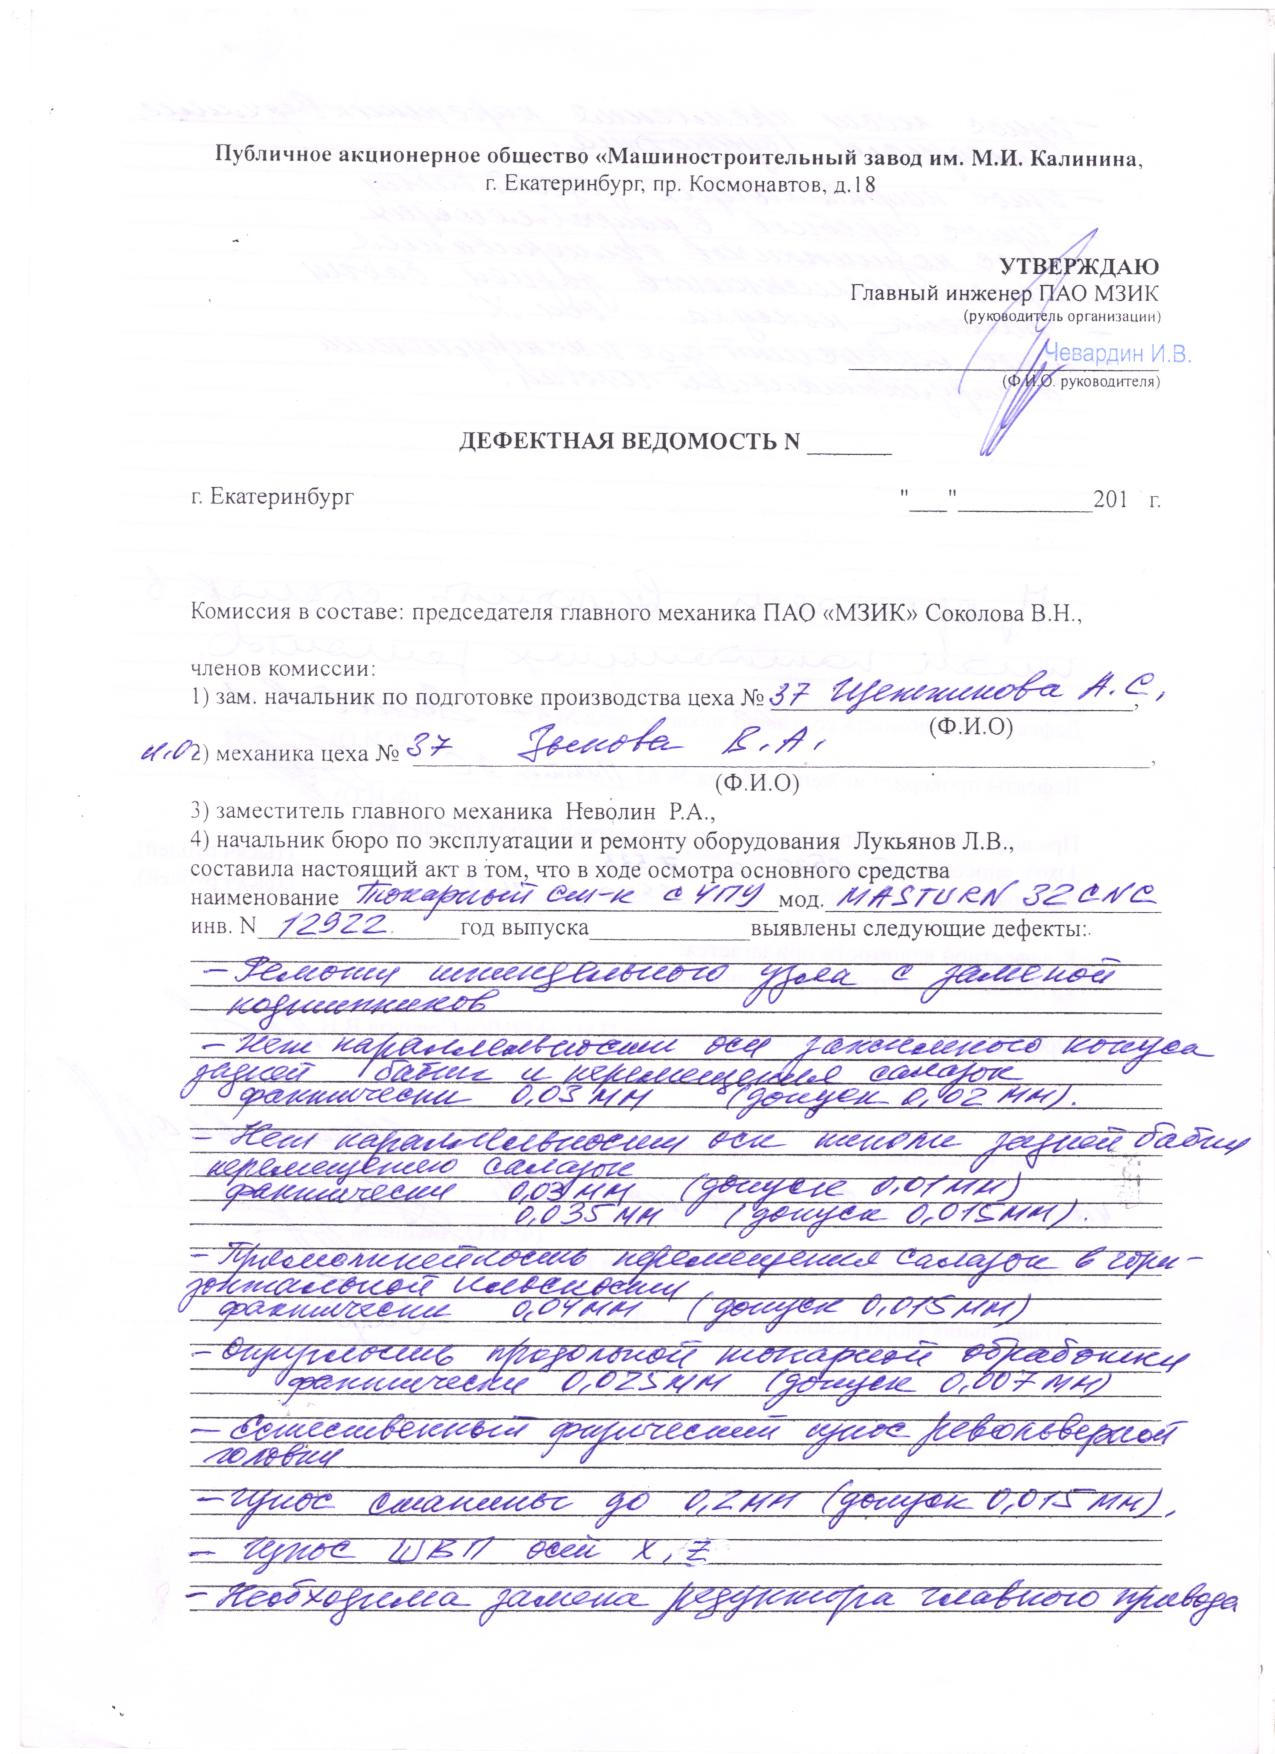 Публичное акционерное общество «Машиностроительный завод им. М.И. Калинина,
г. Екатеринбург, пр. Космонавтов, д.18
УТВЕРЖДАЮ
Главный инженер ПАО МЗИК
(руководитель организации)
Чевардин И.В.
(Ф.И.О. руководителя)
ДЕФЕКТНАЯ ВЕДОМОСТЬ N ______
г. Екатеринбург "___"___________201 г.
Комиссия в составе: председателя главного механика ПАО «МЗИК» Соколова В.Н.,
членов комиссии:
1) зам. начальник по подготовке производства цеха № 37 Щенникова А.С.,
(Ф.И.О)
и.о 2) механика цеха № 37 Зыкова В.А.,
(Ф.И.О)
3) заместитель главного механика Неволин Р.А.,
4) начальник бюро по эксплуатации и ремонту оборудования Лукьянов Л.В.,
составила настоящий акт в том, что в ходе осмотра основного средства
наименование Токарный ст-к с ЧПУ мод. MASTURN 32 CNC
инв. N 12922 год выпуска_____________выявлены следующие дефекты:
- Ремонт шпиндельного узла с заменой
подшипников
- Нет параллельности оси зажимного конуса
задней бабки и перемещения салазок
фактически 0,03 мм (допуск 0,02 мм).
- Нет параллельности оси пиноли задней бабки
перемещению салазок
фактически 0,03 мм (допуск 0,01 мм)
0,035 мм (допуск 0,015 мм).
- Прямолинейность перемещения салазок в гори-
зонтальной плоскости
фактически 0,04 мм (допуск 0,015 мм)
- Округлость продольной токарной обработки
фактически 0,025 мм (допуск 0,007 мм)
- Естественный физический износ револьверной
головки
- Износ станины до 0,2 мм (допуск 0,015 мм),
- Износ ШВП осей X, Z
- Необходима замена редуктора главного привода